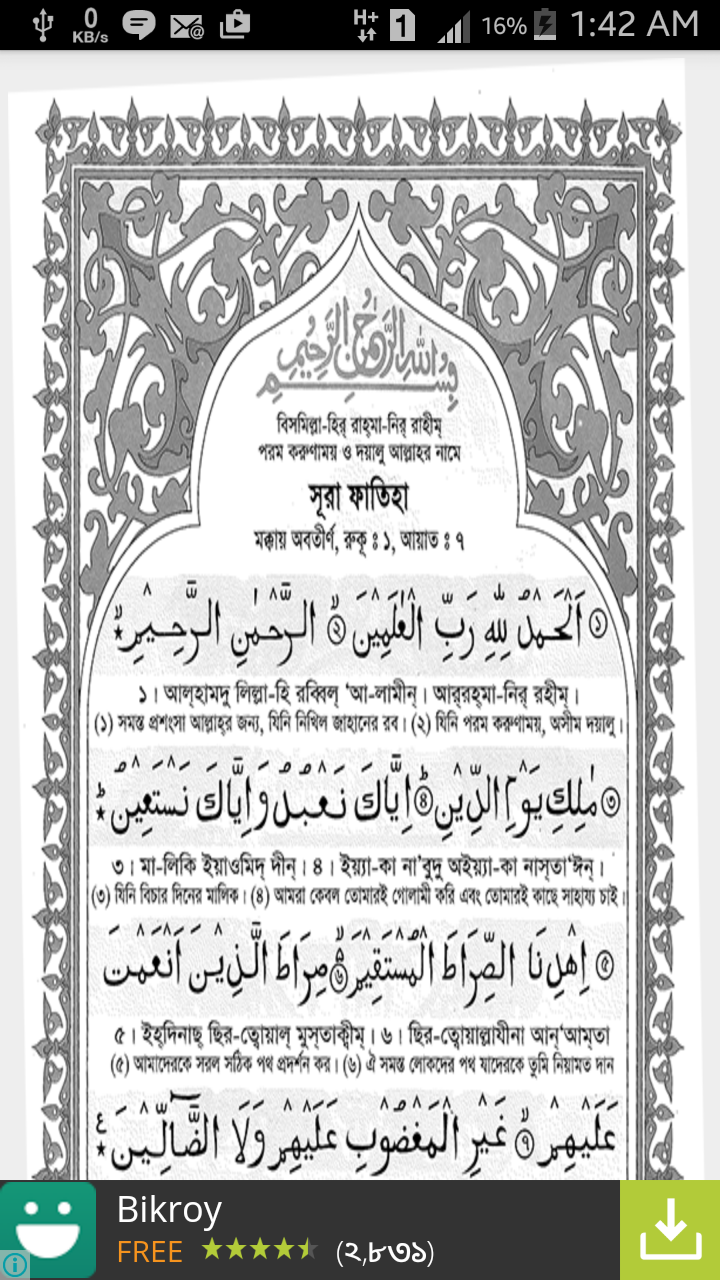 0
KB/s
H+
1
16%
1:42 AM
بِسْمِ اللّٰهِ الرَّحْمٰنِ الرَّحِيْمِ
বিসমিল্লা-হির্ রাহ্‌মা-নির্ রাহীম্
পরম করুণাময় ও দয়ালু আল্লাহর নামে
সূরা ফাতিহা
মক্কায় অবতীর্ণ, রুকূ ঃ ১, আয়াত ঃ ৭
১ اَلْحَمْدُ لِلّٰهِ رَبِّ الْعٰلَمِيْنَ ২ الرَّحْمٰنِ الرَّحِيْمِ
১। আল্‌হামদু লিল্লা-হি রব্বিল্ ‘আ-লামীন্। আর্‌রহ্‌মা-নির্ রহীম্।
(১) সমস্ত প্রশংসা আল্লাহ্‌র জন্য, যিনি নিখিল জাহানের রব। (২) যিনি পরম করুণাময়, অসীম দয়ালু।
৩ مٰلِكِ يَوْمِ الدِّيْنِ ৪ اِيَّاكَ نَعْبُدُ وَاِيَّاكَ نَسْتَعِيْنُ
৩। মা-লিকি ইয়াওমিদ্ দীন্। ৪। ইয়্যা-কা না’বুদু অইয়্যা-কা নাস্‌তা‘ঈন্।
(৩) যিনি বিচার দিনের মালিক। (৪) আমরা কেবল তোমারই গোলামী করি এবং তোমারই কাছে সাহায্য চাই।
৫ اِهْدِنَا الصِّرَاطَ الْمُسْتَقِيْمَ ৬ صِرَاطَ الَّذِيْنَ اَنْعَمْتَ
৫। ইহ্‌দিনাছ্ ছির-ত্বোয়াল্ মুস্‌তাক্বীম্। ৬। ছির-ত্বোয়াল্লাযীনা আন্‘আম্‌তা
(৫) আমাদেরকে সরল সঠিক পথ প্রদর্শন কর। (৬) ঐ সমস্ত লোকদের পথ যাদেরকে তুমি নিয়ামত দান
عَلَيْهِمْ ৭ غَيْرِ الْمَغْضُوْبِ عَلَيْهِمْ وَلَا الضَّآلِّيْنَ
Bikroy
FREE (২,৮৩১)